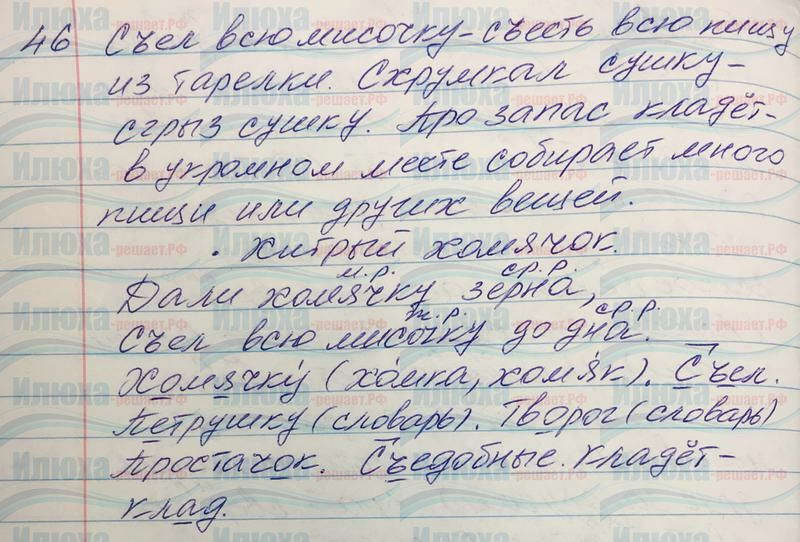 46 Съел всю мисочку - съесть всю пищу
из тарелки. Схрумкал сушку -
сгрыз сушку. Про запас кладёт -
в укромном месте собирает много
пищи или других вещей.
• Хитрый хомячок.
м.р. ср.р.
Дали хомячку зерна,
ж.р. ср.р.
Съел всю мисочку до дна.
Хомячку́ (хо́мка, хомя́к). Съел.
Петрушку (словарь). Творог (словарь)
Простачок. Съедобные. Кладёт -
клад.